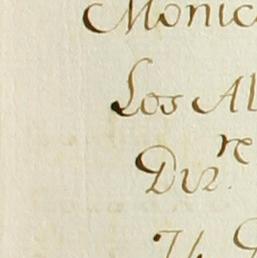 Monic
Los Al
Dir.re